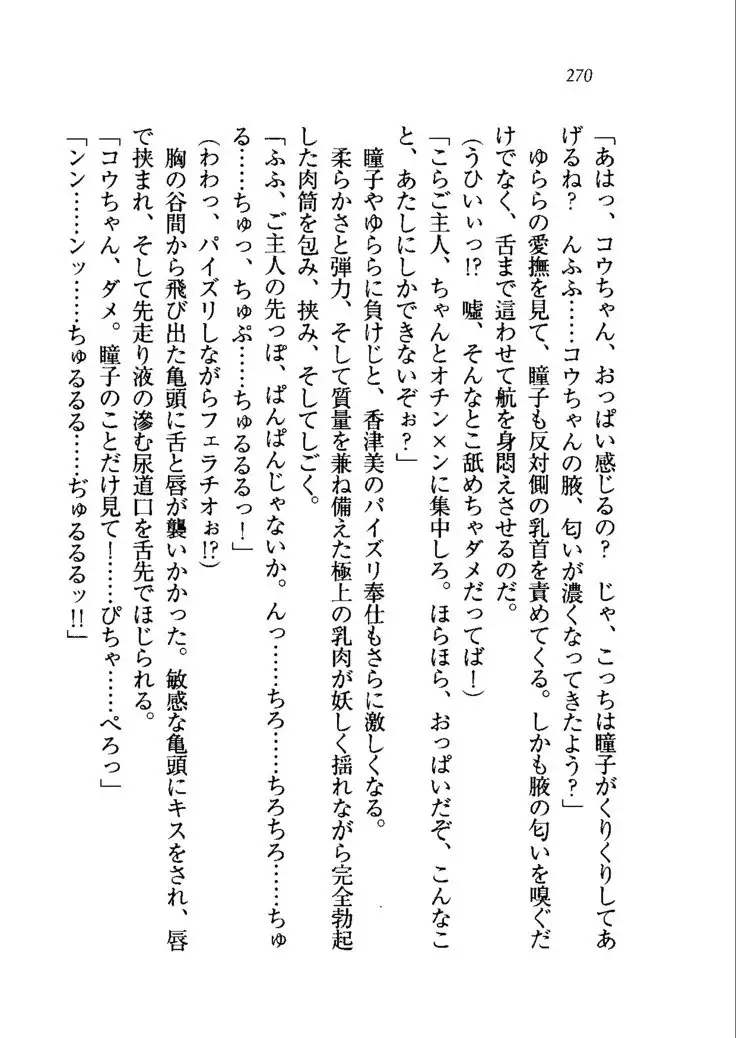 270
「あはっ、コウちゃん、おっぱい感じるの？　じゃ、こっちは瞳子がくりくりしてあ
げるね？　んふふ……コウちゃんの腋、匂いが濃くなってきたよう？」
　ゆららの愛撫を見て、瞳子も反対側の乳首を責めてくる。しかも腋の匂いを嗅ぐだ
けでなく、舌まで這わせて航を身悶えさせるのだ。
(うひいぃっ!?　嘘、そんなとこ舐めちゃダメだってば！)
「こらご主人、ちゃんとオチン×ンに集中しろ。ほらほら、おっぱいだぞ、こんなこ
と、あたしにしかできないぞぉ？」
　瞳子やゆららに負けじと、香津美のパイズリ奉仕もさらに激しくなる。
　柔らかさと弾力、そして質量を兼ね備えた極上の乳肉が妖しく揺れながら完全勃起
した肉筒を包み、挟み、そしてしごく。
「ふふ、ご主人の先っぽ、ぱんぱんじゃないか。んっ……ちろ……ちろちろ……ちゅ
る……ちゅっ、ちゅぷ……ちゅるるるっ！」
(わわっ、パイズリしながらフェラチオぉ!?)
　胸の谷間から飛び出た亀頭に舌と唇が襲いかかった。敏感な亀頭にキスをされ、唇
で挟まれ、そして先走り液の滲む尿道口を舌先でほじられる。
「コウちゃん、ダメ。瞳子のことだけ見て！……ぴちゃ……ぺろっ」
「ンン……ンッ……ちゅるるる……ぢゅるるるッ!!」